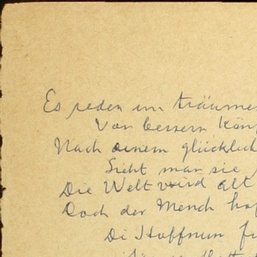 Es reden un träume
Von bessern Kün
Nach einem glücklich
Sieht man sie
Die Welt wird alt
Doch der Mench ho
Di Hoffnun f